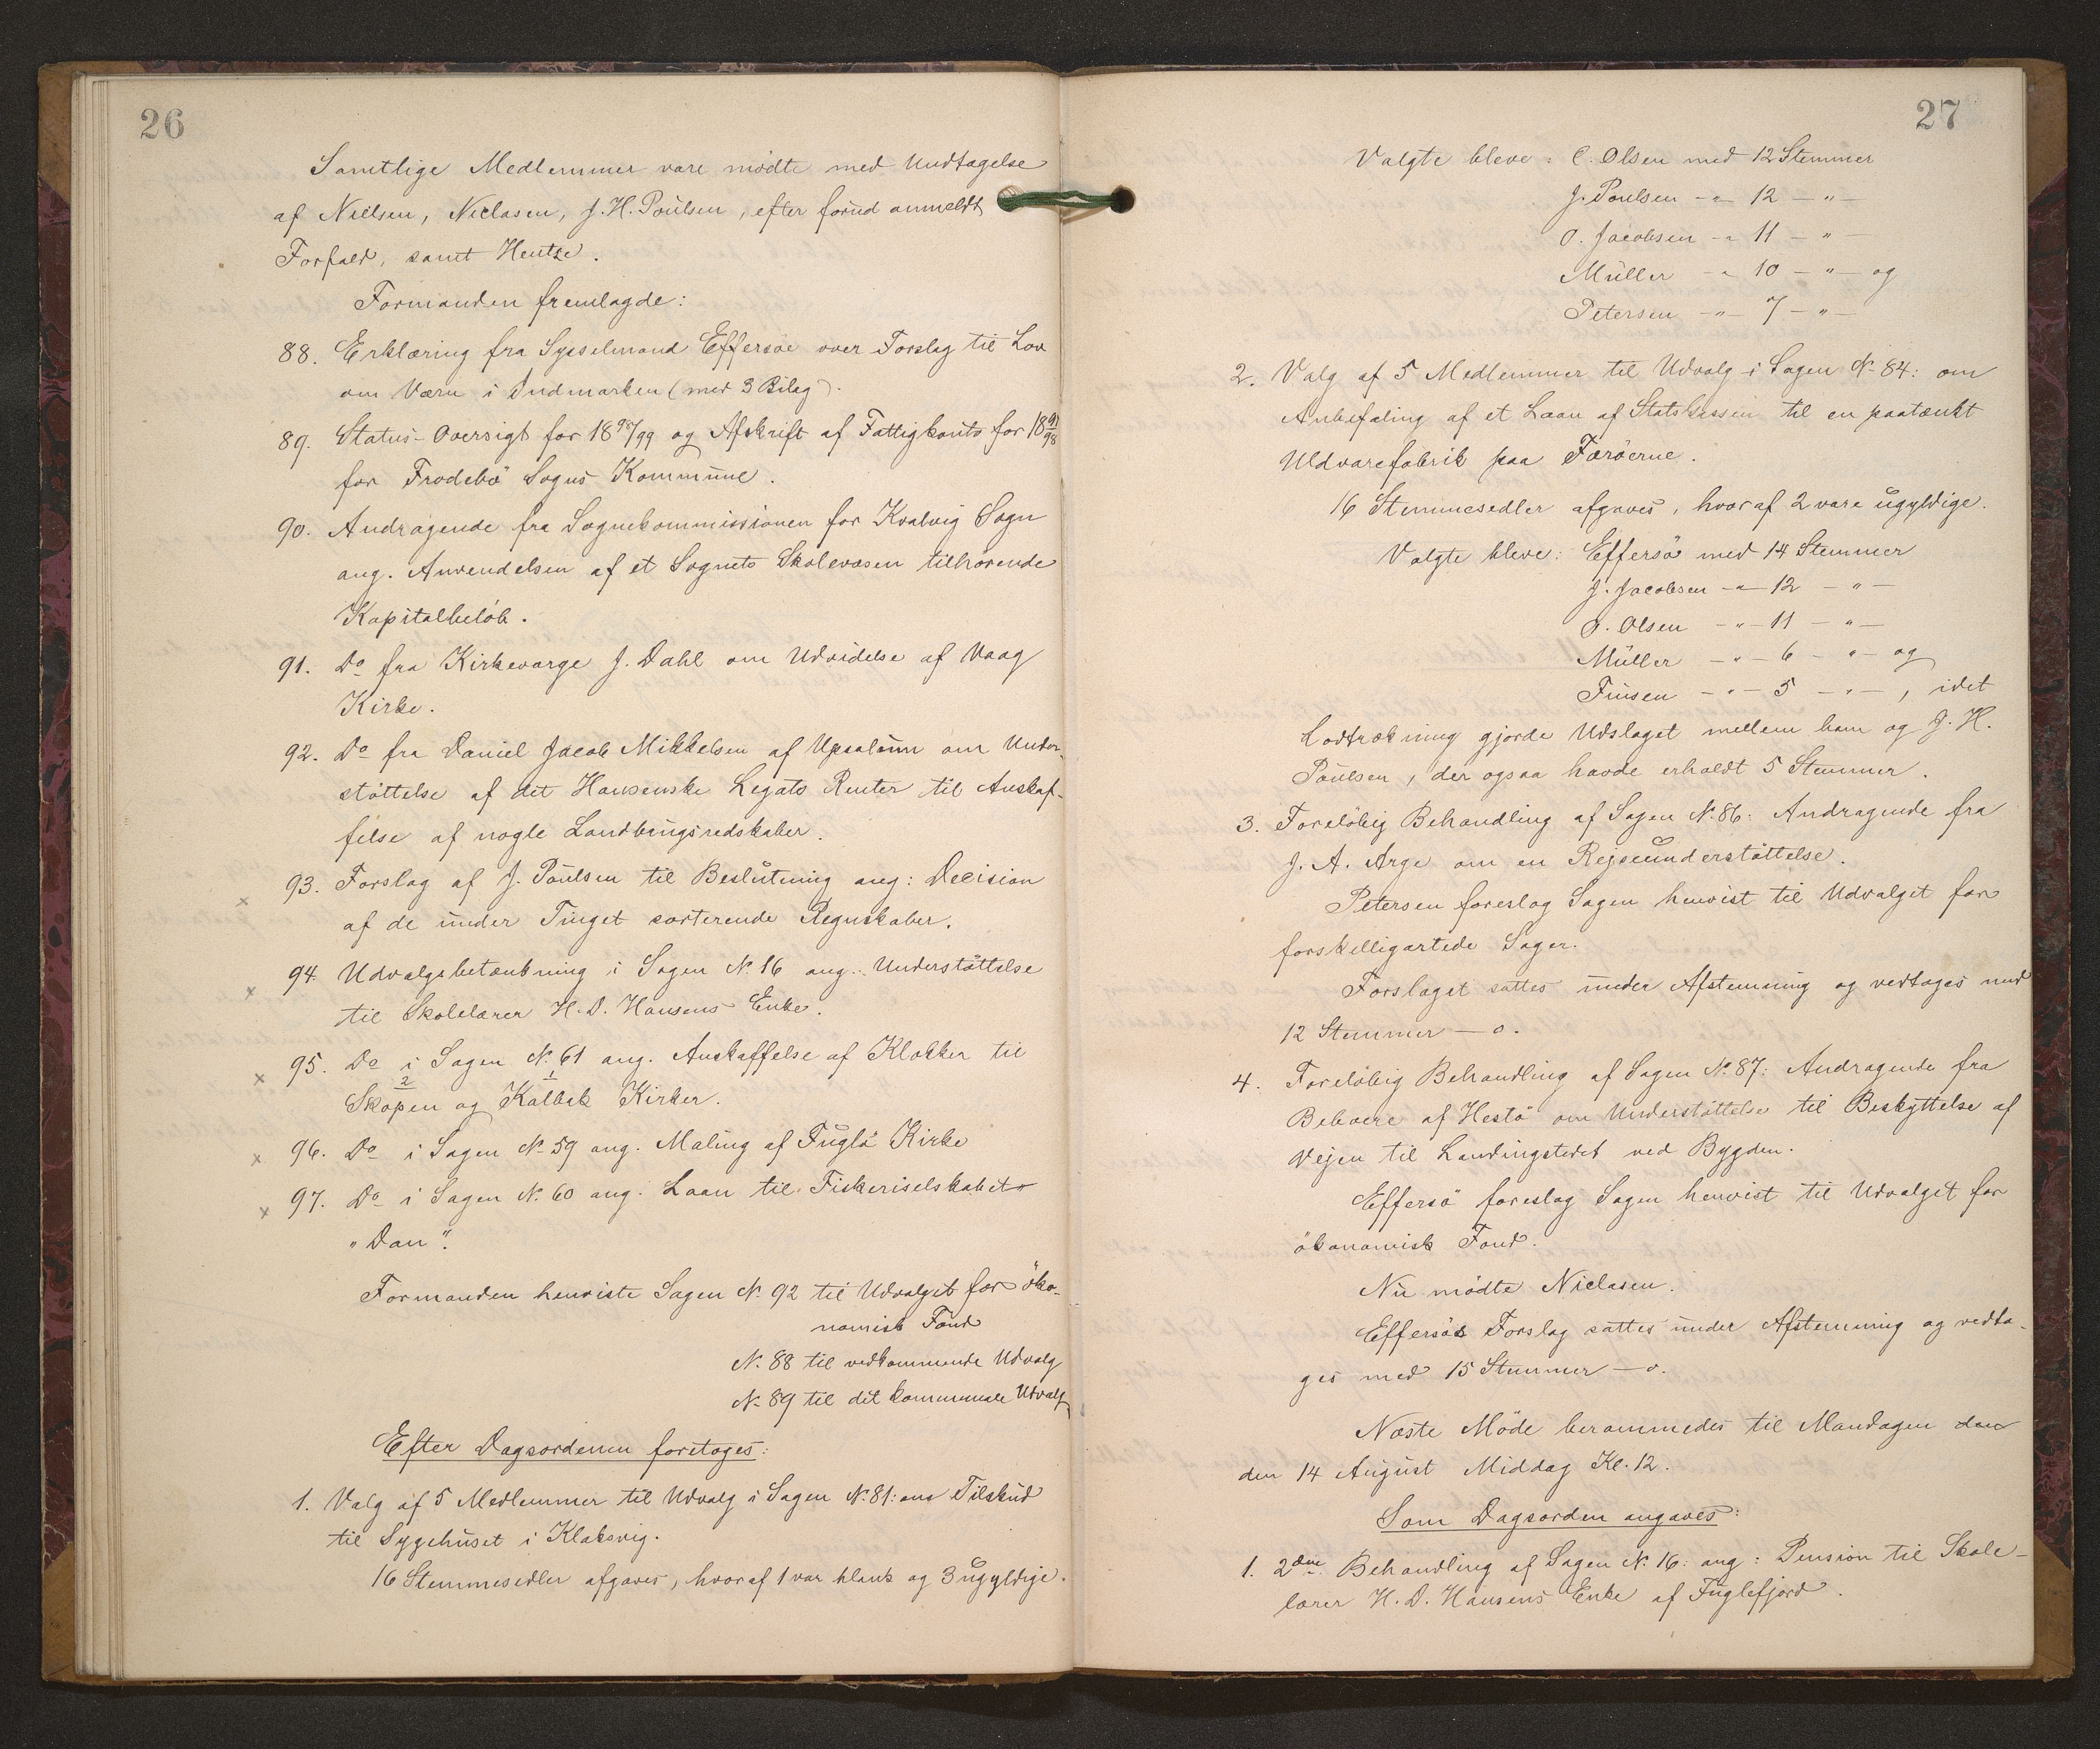 26
Samtlige Medlemmer vare mødte med Undtagelse
af Nielsen, Niclasen, J. H. Poulsen, efter forud anmeldt
Forfald, samt Hentze.
Formanden fremlagde:
88. Erklæring fra Sysselmand Effersöe over Forslag til Lov
om Værn i Indmarken (med 3 Bilag).
89. Status-Oversigt for 18 98/99 og Afskrift af Fattigkonto for 18 97/98
for Frodebö Sogns Kommune.
90. Andragende fra Sognekommissionen for Kvalvig Sogn
ang. Anvendelsen af et Sognets Skolevæsen tilhørende
Kapitalbeløb.
91. Do fra Kirkeværge J. Dahl om Udvidelse af Vaag
Kirke.
92. Do fra Daniel Jacob Mikkelsen af Upsalum om Under-
støttelse af det Hansenske Legats Renter til Anskaf-
felse af nogle Landbrugsredskaber.
x 93. Forslag af J. Poulsen til Beslutning ang: Decision
af de under Tinget sorterende Regnskaber.
x 94. Udvalgsbetænkning i Sagen N. 16 ang. Understøttelse
til Skolelærer H. D. Hansens Enke.
x 95. Do i Sagen N. 61 ang. Anskaffelse af Klokker til
2 1
Skopen og Kalbak Kirker.
x 96. Do i Sagen N. 59 ang. Maling af Fuglö Kirke
x 97. Do i Sagen N. 60 ang. Laan til Fiskeriselskabet
"Dan".
Formanden henviste Sagen N. 92 til Udvalget for öko-
nomisk Fond
N. 88 til vedkommende Udvalg
N. 89 til det kommunale Udvalg
Efter Dagsordenen foretoges:
1. Valg af 5 Medlemmer til Udvalg i Sagen N. 81: om Tilskud
til Sygehuset i Klaksvig.
16 Stemmesedler afgaves, hvoraf 1 var blank og 3 ugyldige.
27
Valgte bleve: C. Olsen med 12 Stemmer
J. Poulsen -"- 12 -"-
O. Jacobsen -"- 11 -"-
Müller -"- 10 -"- og
Petersen -"- 7 -"-
2. Valg af 5 Medlemmer til Udvalg i Sagen N. 84: om
Anbefaling af et Laan af Statskassen til en paatænkt
Uldvarefabrik paa Færöerne.
16 Stemmesedler afgaves, hvoraf 2 vare ugyldige.
Valgte bleve: Effersö med 14 Stemmer
J. Jacobsen -"- 12 -"-
O. Olsen -"- 11 -"-
Müller -"- 6 -"- og
Finsen -"- 5 -"-, idet
Lodtrækning gjorde Udslaget mellem ham og J. H.
Poulsen, der ogsaa havde erholdt 5 Stemmer.
3. Foreløbig Behandling af Sagen N. 86: Andragende fra
J. A. Arge om en Rejseunderstøttelse.
Petersen foreslog Sagen henvist til Udvalget for
forskelligartede Sager.
Forslaget sattes under Afstemning og vedtoges med
12 Stemmer — o.
4. Foreløbig Behandling af Sagen N. 87: Andragende fra
Beboere af Hestö om Understøttelse til Beskyttelse af
Vejen til Landingstedet ved Bygden.
Effersö foreslog Sagen henvist til Udvalget for
ökonomisk Fond.
Nu mødte Niclasen.
Effersös Forslag sattes under Afstemning og vedto-
ges med 15 Stemmer — o.
Næste Møde berammedes til Mandagen den
den 14 August Middag Kl. 12.
Som Dagsorden angaves:
1. 2den Behandling af Sagen N. 16: ang: Pension til Skole-
lærer H. D. Hansens Enke af Fuglefjord.